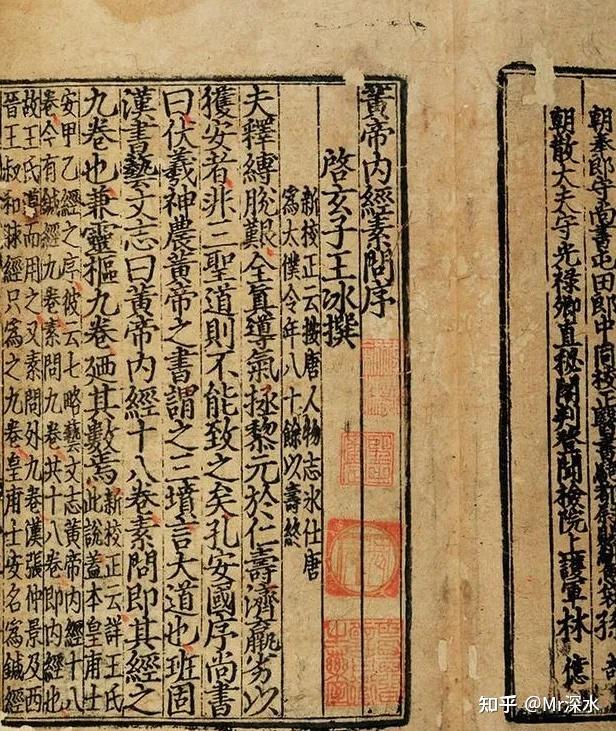 朝奉郎守尚書屯田郎中同校正醫書騎都尉賜緋魚袋孫
朝散大夫守光祿卿直秘閣判登聞檢院上護軍林 億
黃帝內經素問序
啓玄子王冰撰
新校正云按唐人物志冰仕唐
爲太僕令年八十餘以壽終
夫釋縛脫艱全真導氣拯黎元於仁壽濟羸劣以
獲安者非三聖道則不能致之矣孔安國序尚書
曰伏羲神農黃帝之書謂之三墳言大道也班固
漢書藝文志曰黃帝內經十八卷素問即其經之
九卷也兼靈樞九卷廼其數焉
新校正云詳王氏
此說蓋本皇甫士
安甲乙經之序彼云七略藝文志黃帝內經十八
卷今有鍼經九卷素問九卷共十八卷即內經也
故王氏遵而用之又素問外九卷漢張仲景及西
晉王叔和脉經只爲之九卷皇甫士安名爲鍼經
知乎 @Mr深水